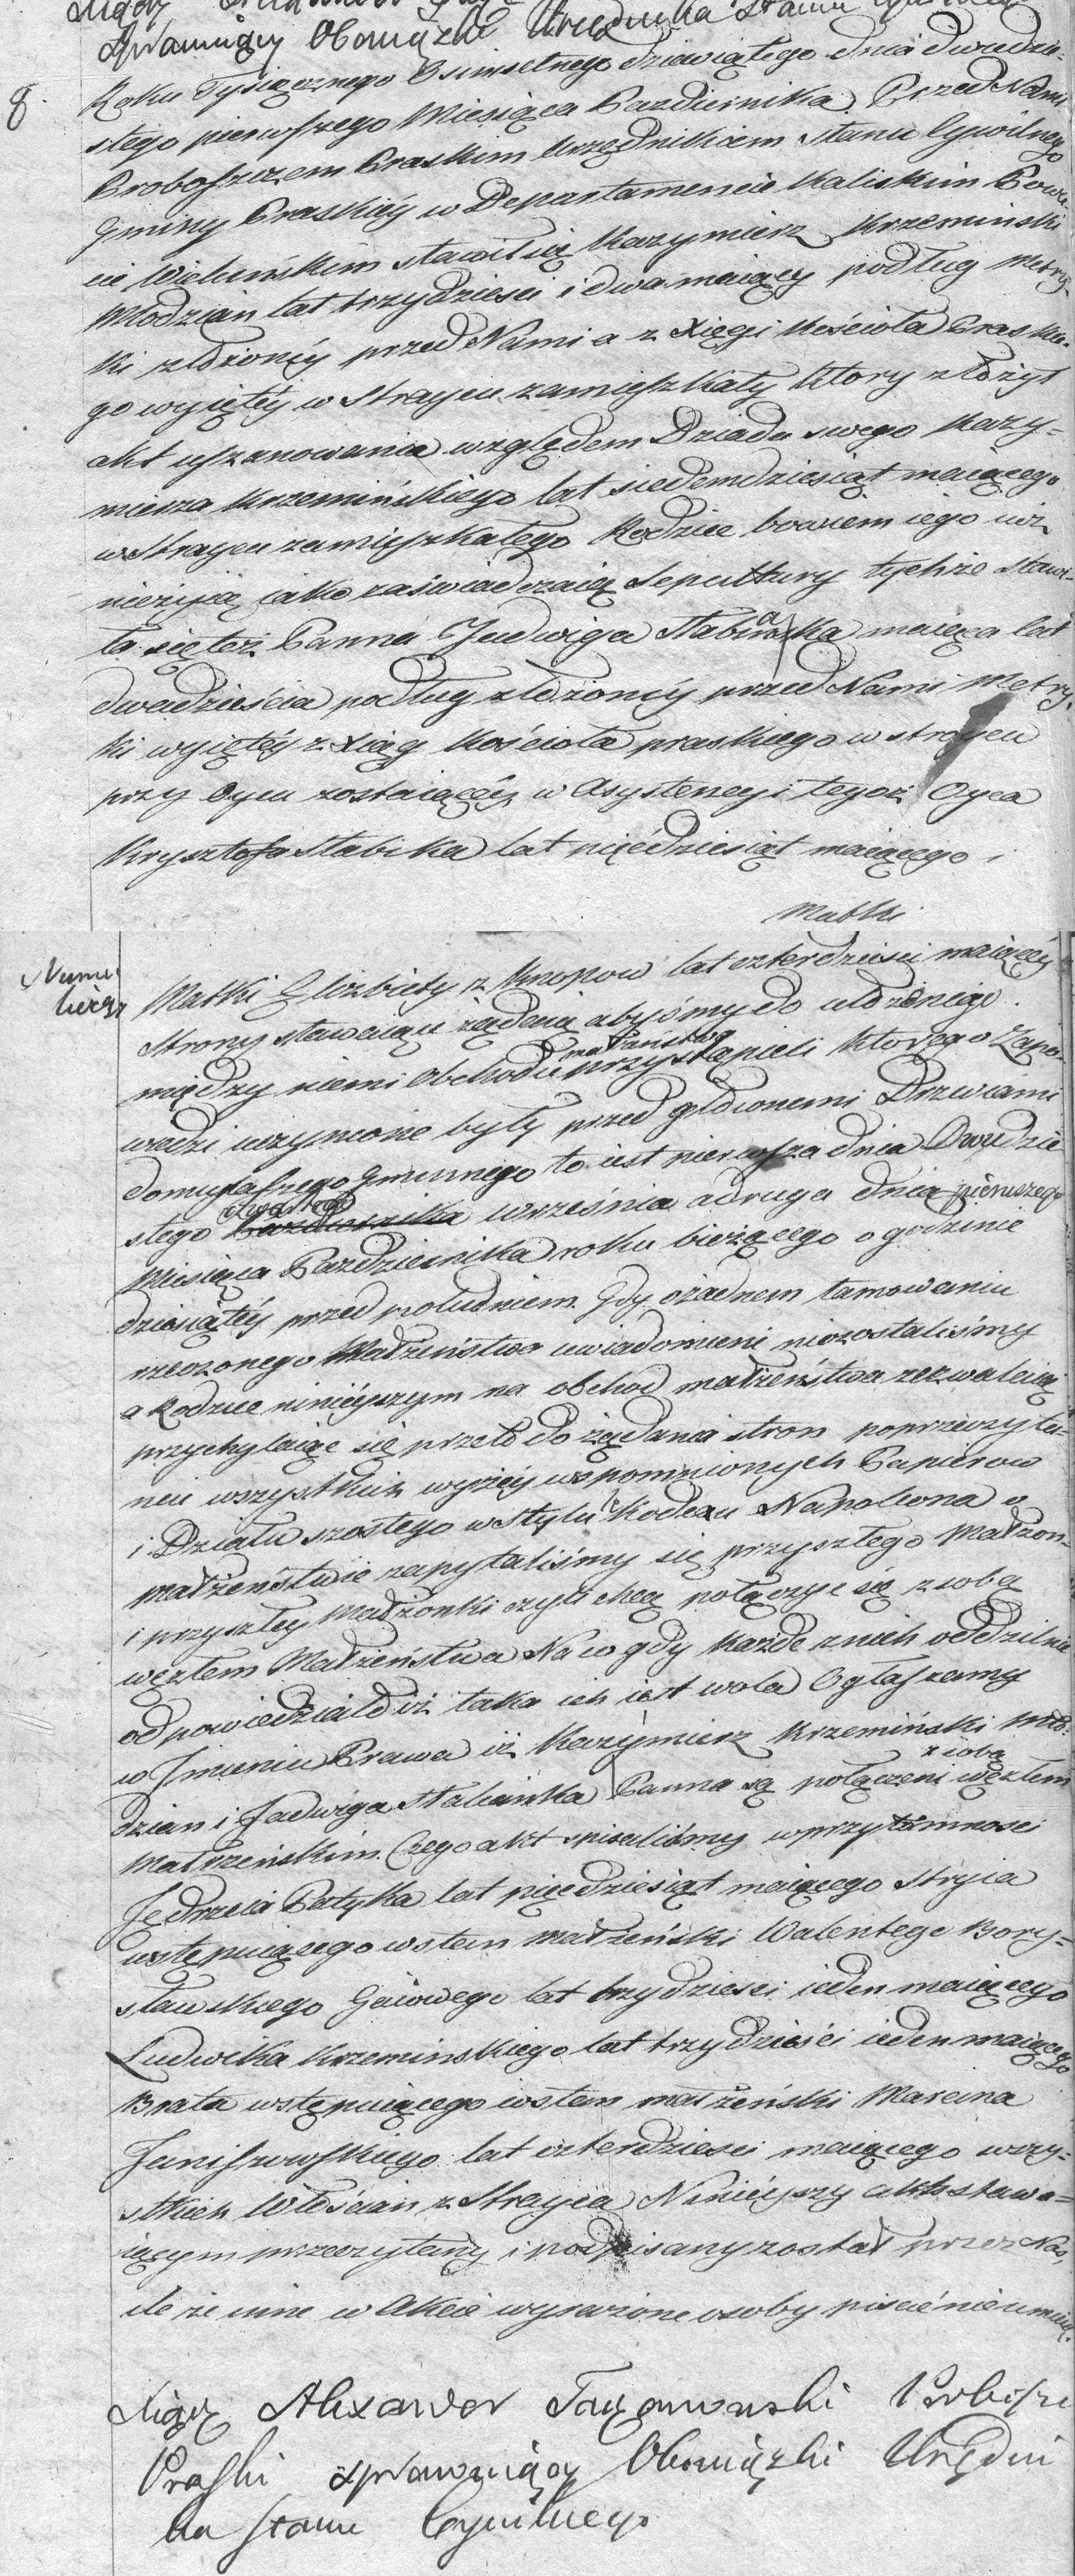 Sprawuiący Obowiązki Urzędnika Stanu Cywilnego
8. Roku Tysiącznego Osimsetnego dziewiątego dnia dwudzie-
stego pierwszego Miesiąca Pazdziernika Przed Nami
Proboszczem Praskim Urzędnikiem Stanu Cywilnego
Gminy Praskiéy w Departamencie Kaliskim Powie-
cie Wieluńskim stawił się Kazymierz Krzemiński
Młodzian lat trzydzieści i dwa maiący podług Metry-
ki złożonéy przed Nami a z Xięgi Kościoła Praskie-
go wyiętéy w Stroycu zamięszkały ktory złożył
akt uszanowania względem Dziada swego Kazy=
mierza Krzemińskiego lat siedemdziesiąt maiącego
w Stroycu zamięszkałego Rodzice bowiem iego iuż
nieżyią iako zaświadczaią Sepultury tychże Stawi-
ła się też Panna Jadwiga maiąca lat
dwadzieścia podług złożonéy przed Nami Metry-
ki wyiętéy z Xiąg Kościoła praskiego w stroycu
przy Oycu zostaiącéy w Asystencyi tegoż Oyca
Krysztofa Stabika lat pięćdziesiąt maiącego i
Matki
Matki Elżbiety z Knopow lat czterdzieści maiącéy
Strony stawaiące żądaią abyśmy do ułożonego
między niemi obchodu małżeństwa przystąpieli ktorego Zapo-
wiedzi uczynione były przed głownemi Drzwiami
domu naszego Gminnego to iest pierwsza dnia Dwudzie
stego września a druga dnia pierwszego
Miesiąca Pazdziernika roku bieżącego o godzinie
dziesiątéy przed południem. Gdy o żadnem tamowaniu
rzeczonego Małżeństwa uwiadomieni niezostaliśmy
a Rodzice ninieyszym na obchod małżeństwa zezwalaią
przychylaiąc się przeto do żądania stron poprzeczyta-
niu wszystkich wyżéy wspomnionych Papierow
i Działu szostego w Kodexu Napoleona o
małżeństwie zapytaliśmy się przyszłego Małżon-
i przyszłey Małżonki czyli chcą połączyć się z sobą
węzłem Małżeństwa Na co gdy każde z nich oddzielnie
odpowiedziało iż taka ich iest wola Ogłaszamy
w Jmieniu Prawa iż Kazymierz Krzemiński Mło-
dzian i Jadwiga Panna są połączeni z sobą węzłem
Małżeńskim. Czego akt spisaliśmy w przytomności
Jędrzeia Patyka lat pięćdziesiąt maiącego Stryia
wstępuiącego w sten małżeński Walentego Bory=
sławskiego Gaiowego lat trzydzieści ieden maiącego
Ludwika Krzeminskiego lat trzydzieści ieden maiącego
Brata wstępuiącego w sten małżeński Marcina
Janiszowskiego lat czterdzieści maiącego wszy=
stkich Włościan z Stroyca Ninieyszy akt stawa=
iącym przeczytany i podpisany został przez Nas,
ile że inne w Akcie wyrażone osoby pisać nieumieią.
Xiądz Alexander Probosz
Praski sprawuiący Obowiązki Urzędni
ka Stanu Cywilnego